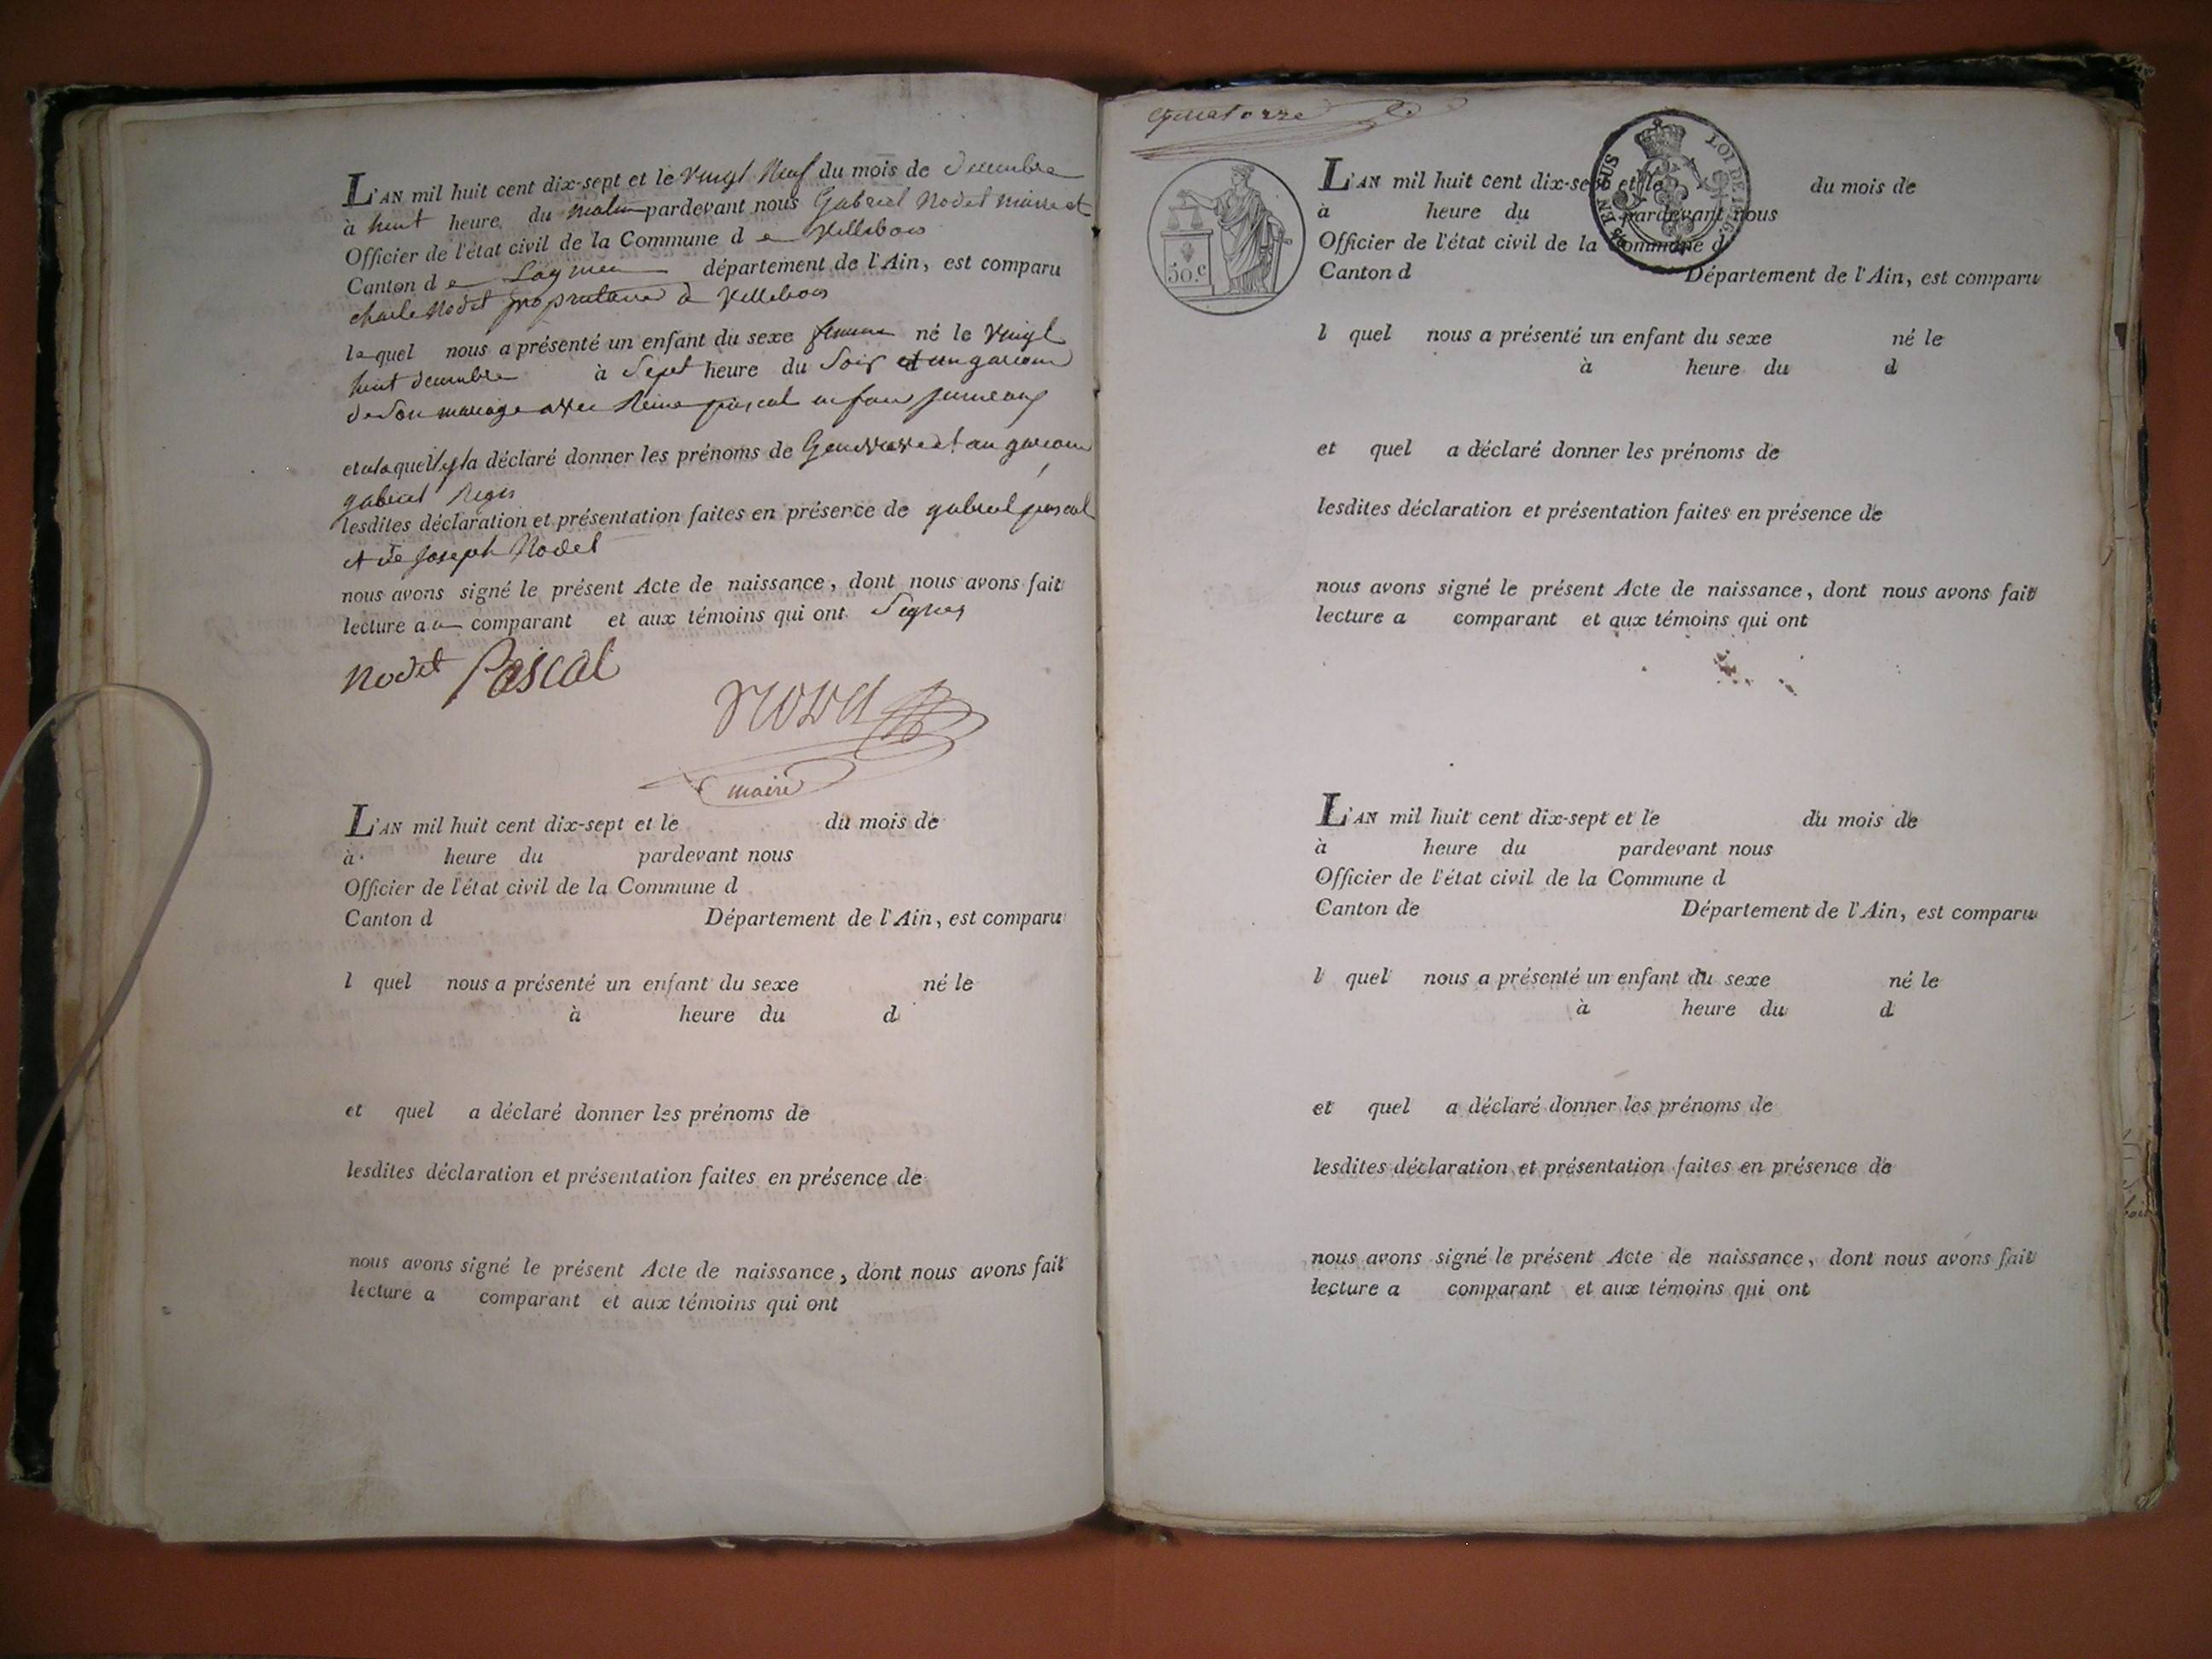 L'AN mil huit cent dix-sept et le vingt Neuf du mois de decembre
à huit heure du matin pardevant nous Gabriel Nodet maire et
Officier de l'état civil de la Commune de Villebois
Canton de Lagnieu département de l'Ain, est comparu
charle Nodet proprietaire à Villebois
lequel nous a présenté un enfant du sexe né le vingt
huit decembre à Sept heure du Soir et un garcon
de Son mariage avec Reine pascal enfans jumeaux
quel a déclaré donner les prénoms de Genevieve et au garcon
gabriel Regis
lesdites déclaration et présentation faites en présence de gabriel pascal
et de joseph Nodet
nous avons signé le présent Acte de naissance, dont nous avons fait
lecture au comparant et aux témoins qui ont Signes
Nodet Pascal
Nodet
maire
L'AN mil huit cent dix-sept et le du mois de
à heure du pardevant nous
Officier de l'état civil de la Commune d
Canton d Département de l'Ain, est comparu
l quel nous a présenté un enfant du sexe né le
à heure du d
et quel a déclaré donner les prénoms de
lesdites déclaration et présentation faites en présence de
nous avons signé le présent Acte de naissance, dont nous avons fait
lecture a comparant et aux témoins qui ont
quatorze
50.c
LOI DE 1816.
EN SUS
L'AN mil huit cent dix-sept et le du mois de
à heure du pardevant nous
Officier de l'état civil de la Commune d
Canton d Département de l'Ain, est comparu
l quel nous a présenté un enfant du sexe né le
à heure du d
et quel a déclaré donner les prénoms de
lesdites déclaration et présentation faites en présence de
nous avons signé le présent Acte de naissance, dont nous avons fait
lecture a comparant et aux témoins qui ont
L'AN mil huit cent dix-sept et le du mois de
à heure du pardevant nous
Officier de l'état civil de la Commune d
Canton de Département de l'Ain, est comparu
l quel nous a présenté un enfant du sexe né le
à heure du d
et quel a déclaré donner les prénoms de
lesdites déclaration et présentation faites en présence de
nous avons signé le présent Acte de naissance, dont nous avons fait
lecture a comparant et aux témoins qui ont